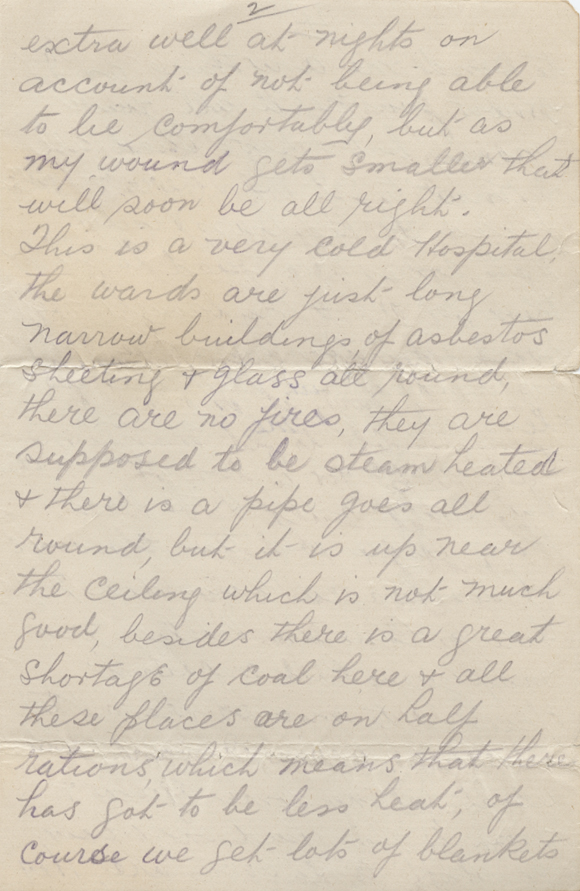 2
extra well at nights on
account of not being able
to lie comfortably, but as
my wound gets smaller that
will soon be all right.
This is a very cold Hospital,
the wards are just long
narrow buildings, of asbestos
sheeting & glass all round,
there are no fires, they are
supposed to be steam heated
& there is a pipe goes all
round, but it is up near
the ceiling which is not much
good, besides there is a great
shortage of coal here & all
these places are on half
rations, which means that there
has got to be less heat, of
course we get lots of blankets